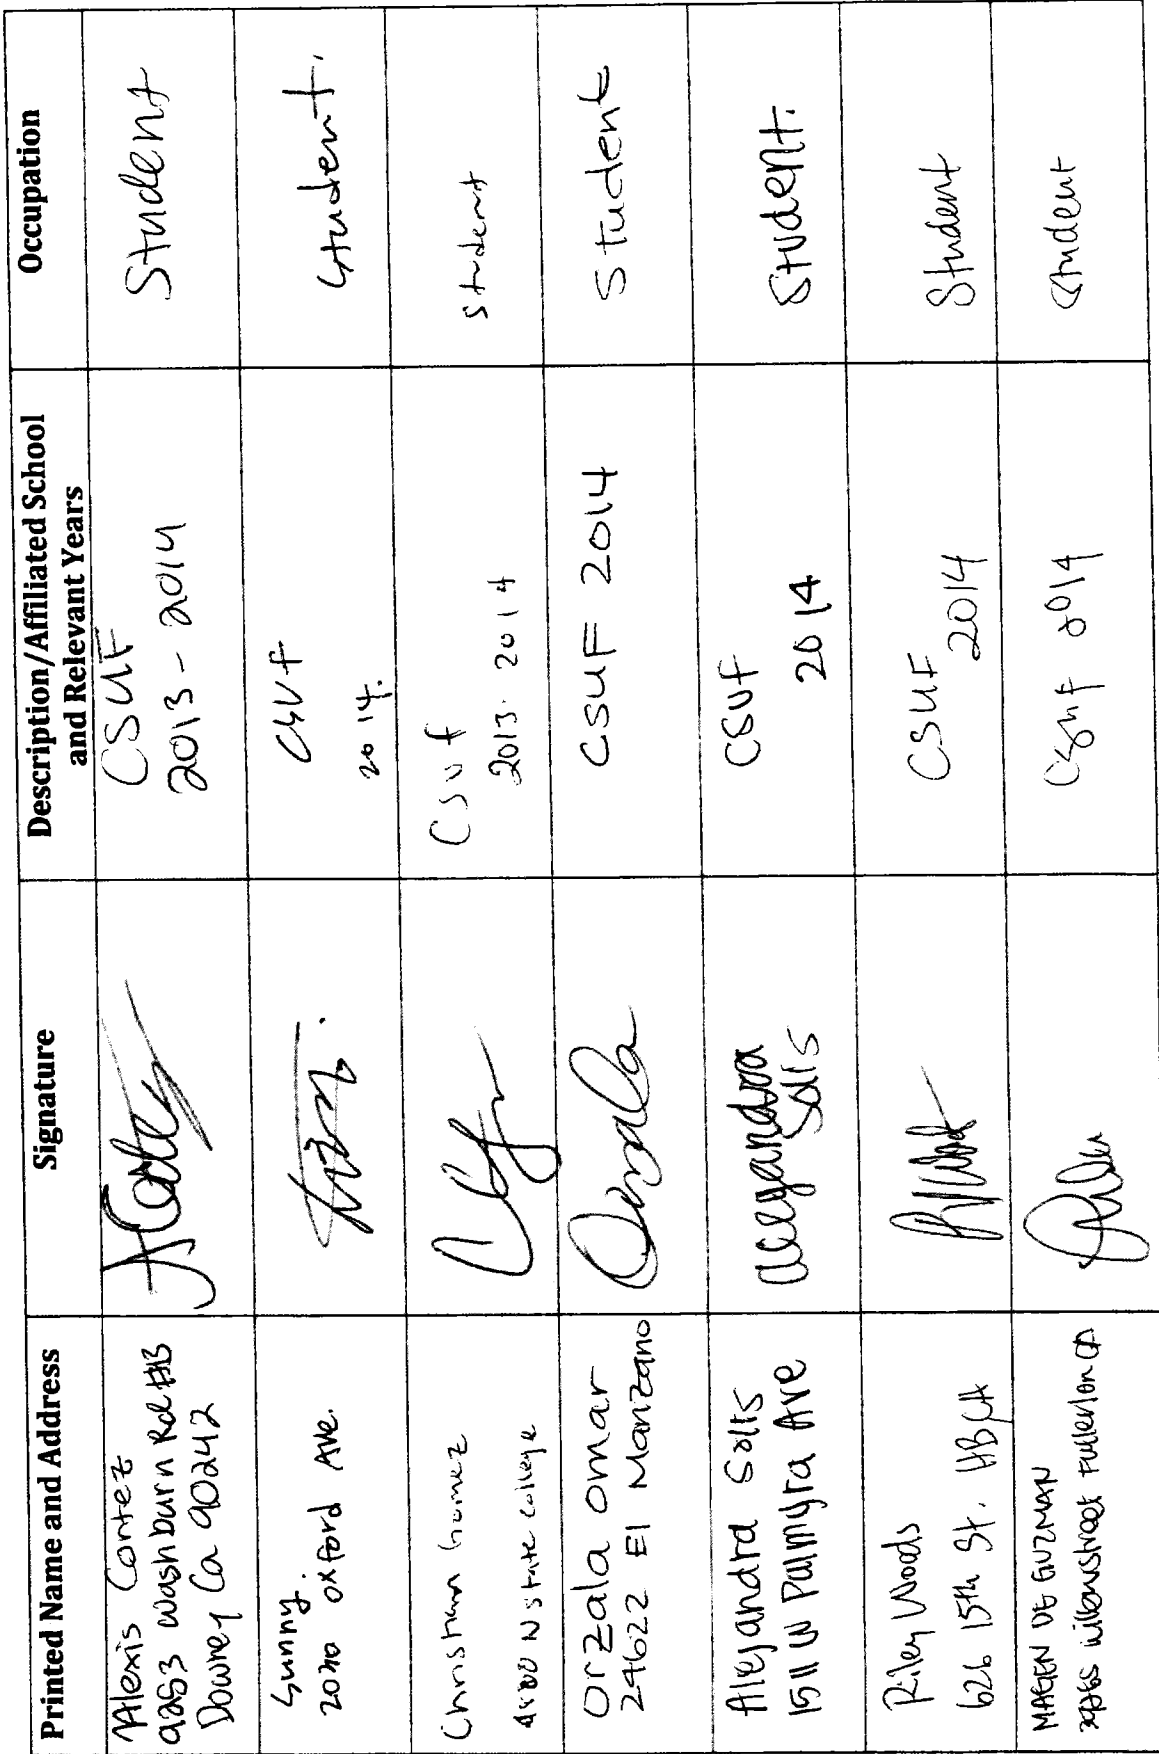 Printed Name and Address
Signature
Description/Affiliated School
and Relevant Years
Occupation
Alexis Cortez
9253 Washburn Rd #B
Downey Ca 90242
CSUF
2013 - 2014
Student
Sunny.
Oxford Ave.
CSUF
2014.
Student.
Christian Gomez
N State College
CSUf
2013. 2014
student
Orzala Omar
24622 El Manzano
Orzala
CSUF 2014
Student
Aleyandra Solis
1511 W Palmyra Ave
Aleyandra
Solis
CSUF
2014
Student.
Riley Woods
626 15th St. HB CA
CSUF
2014
Student
MAGEN DE GUZMAN
Fullerton CA
Csuf 2014
Student